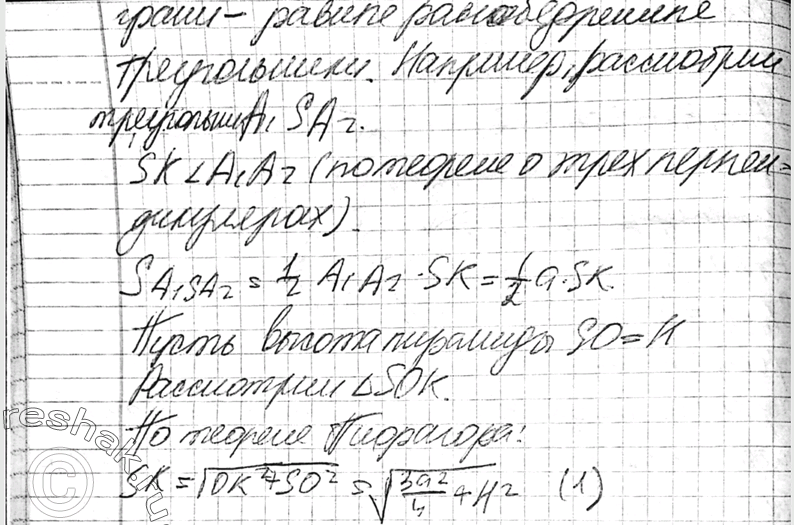 грани - равные равнобедренные
треугольники. Например, рассмотрим
треугольник A₁SA₂.
SK ⊥ A₁A₂ (по теореме о трех перпен-
дикулярах).
S A₁SA₂ = 1/2 A₁A₂ · SK = 1/2 a · SK.
Пусть высота пирамиды SO = H
Рассмотрим △SOK.
По теореме Пифагора:
SK = √(OK² + SO²) = √(3a²/4 + H²) (1)
reshak.ru